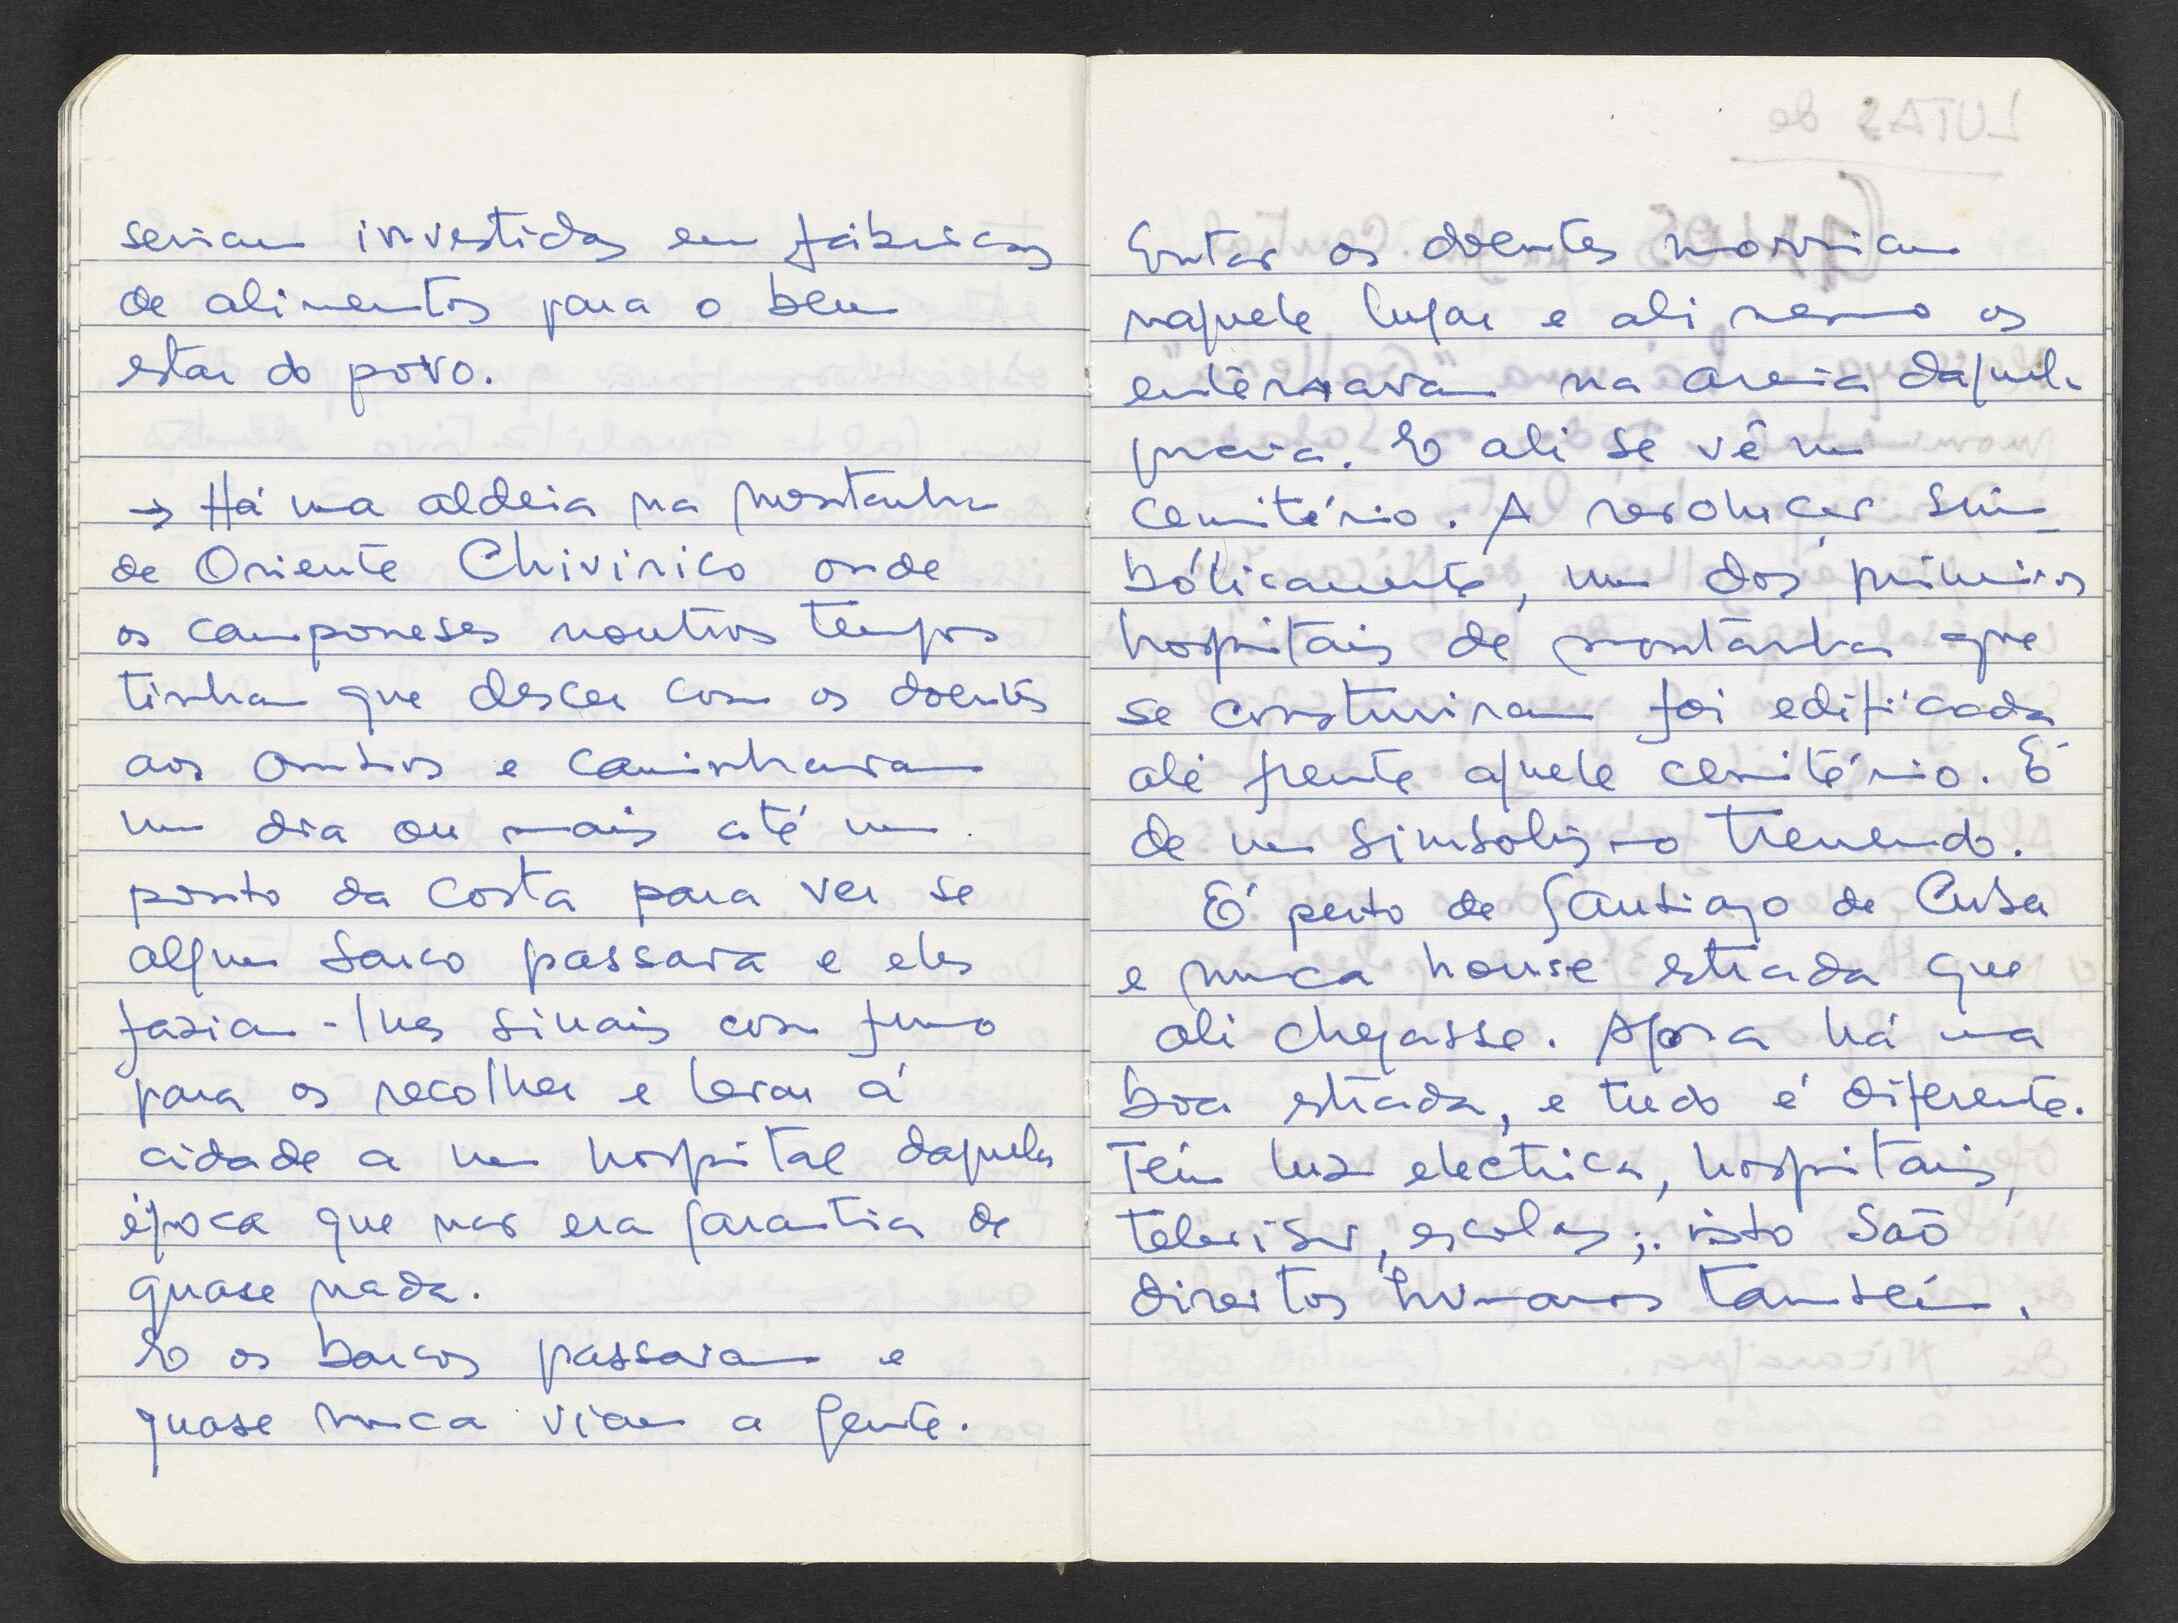 seriam investidas em fábricas
de alimentos para o bem
estar do povo.
→ Há uma aldeia na montanha
de Oriente Chivirico onde
os camponeses noutros tempos
tinham que descer com os doentes
aos ombros e caminhavam
um dia ou mais até um
ponto da costa para ver se
algum barco passava e eles
faziam-lhes sinais com fumo
para os recolher e levar á
cidade a um hospital daquela
época que não era garantia de
quase nada.
E os barcos passavam e
quase nunca viam a gente.
Então os doentes morriam
naquele lugar e ali mesmo os
enterravam na areia daquela
praia. E ali se vê um
cemitério. A revolução sim_
bólicamente, um dos primeiros
hospitais de montanha que
se construiram foi edificada
ali frente aquele cemitério. É
de um simbolismo tremendo.
É perto de Santiago de Cuba
e nunca houve estrada que
ali chegasse. Agora há uma
boa estrada, e tudo é diferente.
Tem luz electrica, hospitais,
televisão, escolas; isto são
direitos humanos também.